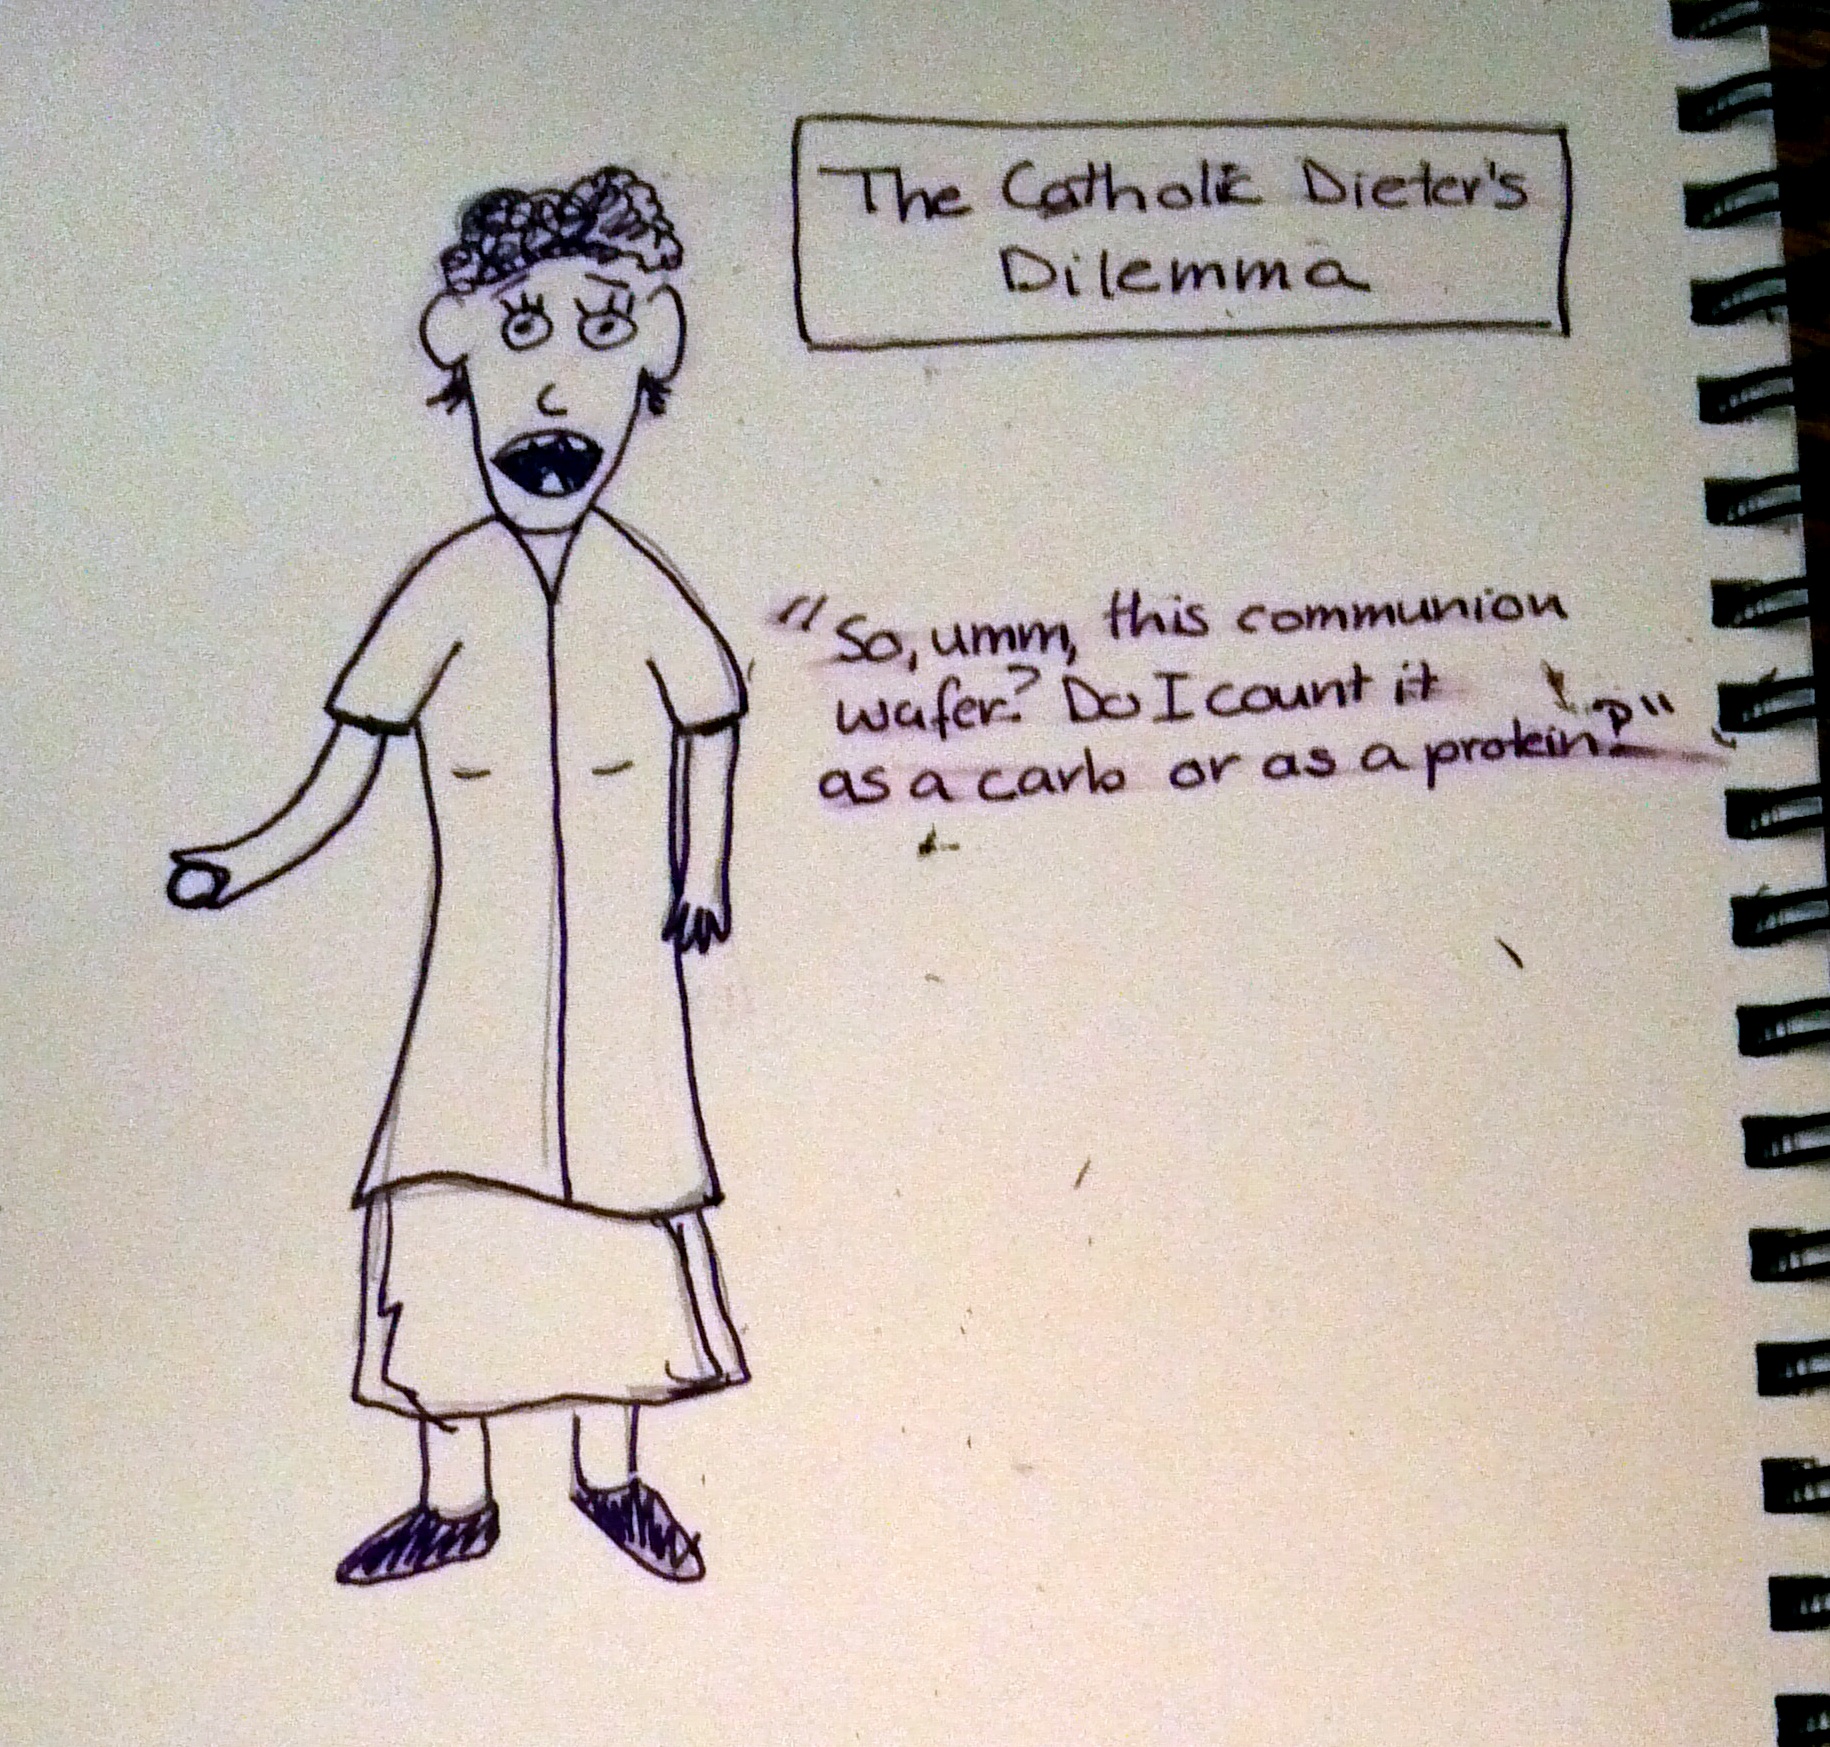 The Catholic Dieter's
Dilemma
"So, umm, this communion
wafer? Do I count it
as a carb or as a protein?"